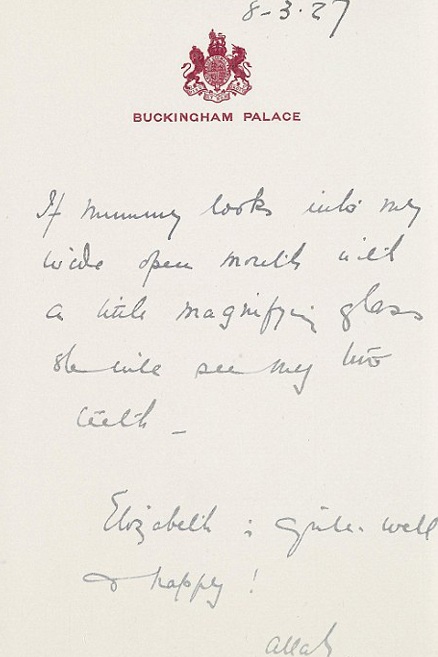 8-3.27
BUCKINGHAM PALACE
If Mummy looks into my
wide open mouth with
a little magnifying glass
she will see my two
teeth –
Elizabeth is quite well
& happy!
Allah